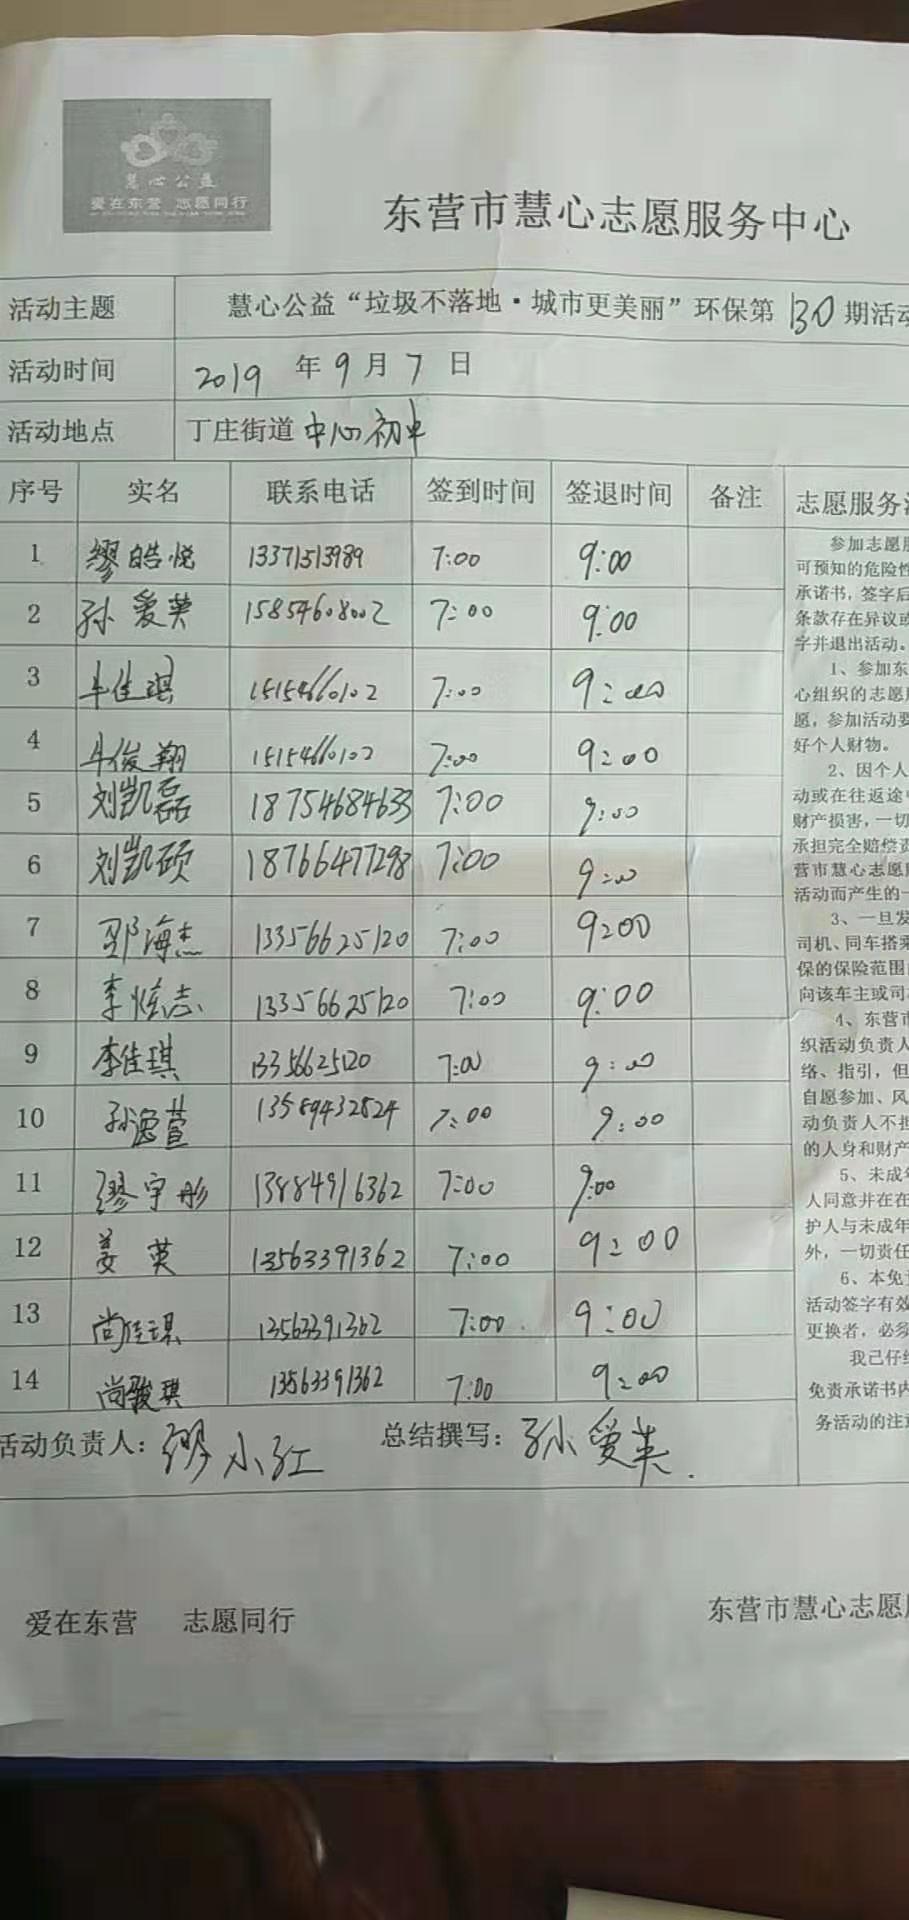 慧心公益
爱在东营 志愿同行
东营市慧心志愿服务中心
活动主题 慧心公益“垃圾不落地·城市更美丽”环保第130期活动
活动时间 2019年9月7日
活动地点 丁庄街道中心初中
序号 实名 联系电话 签到时间 签退时间 备注 志愿服务
1 缪皓悦 13371513989 7:00 9:00
2 孙爱英 15854608002 7:00 9:00
3 牛佳琪 15154660102 7:00 9:00
4 牛俊翔 15154660102 7:00 9:00
5 刘凯磊 18754684633 7:00 9:00
6 刘凯硕 18766477298 7:00 9:00
7 邵海杰 13356625120 7:00 9:00
8 李炫志 13356625120 7:00 9:00
9 李佳琪 13356625120 7:00 9:00
10 孙逸萱 13589432824 7:00 9:00
11 缪宇彤 13884916362 7:00 9:00
12 姜英 13563391362 7:00 9:00
13 尚佳琪 13563391362 7:00 9:00
14 尚骏琪 13563391362 7:00 9:00
参加志愿服
可预知的危险性
承诺书，签字后
条款存在异议或
字并退出活动。
1、参加东
心组织的志愿服
愿，参加活动要
好个人财物。
2、因个人
动或在往返途中
财产损害，一切
承担完全赔偿责
营市慧心志愿服
活动而产生的一
3、一旦发
司机、同车搭乘
保的保险范围
向该车主或司
4、东营市
织活动负责人
络、指引，但
自愿参加、风
动负责人不担
的人身和财产
5、未成年
人同意并在在
护人与未成年
外，一切责任
6、本免责
活动签字有效
更换者，必须
我已仔细
免责承诺书内
务活动的注意
活动负责人：缪小红 总结撰写：孙爱英.
爱在东营 志愿同行
东营市慧心志愿服